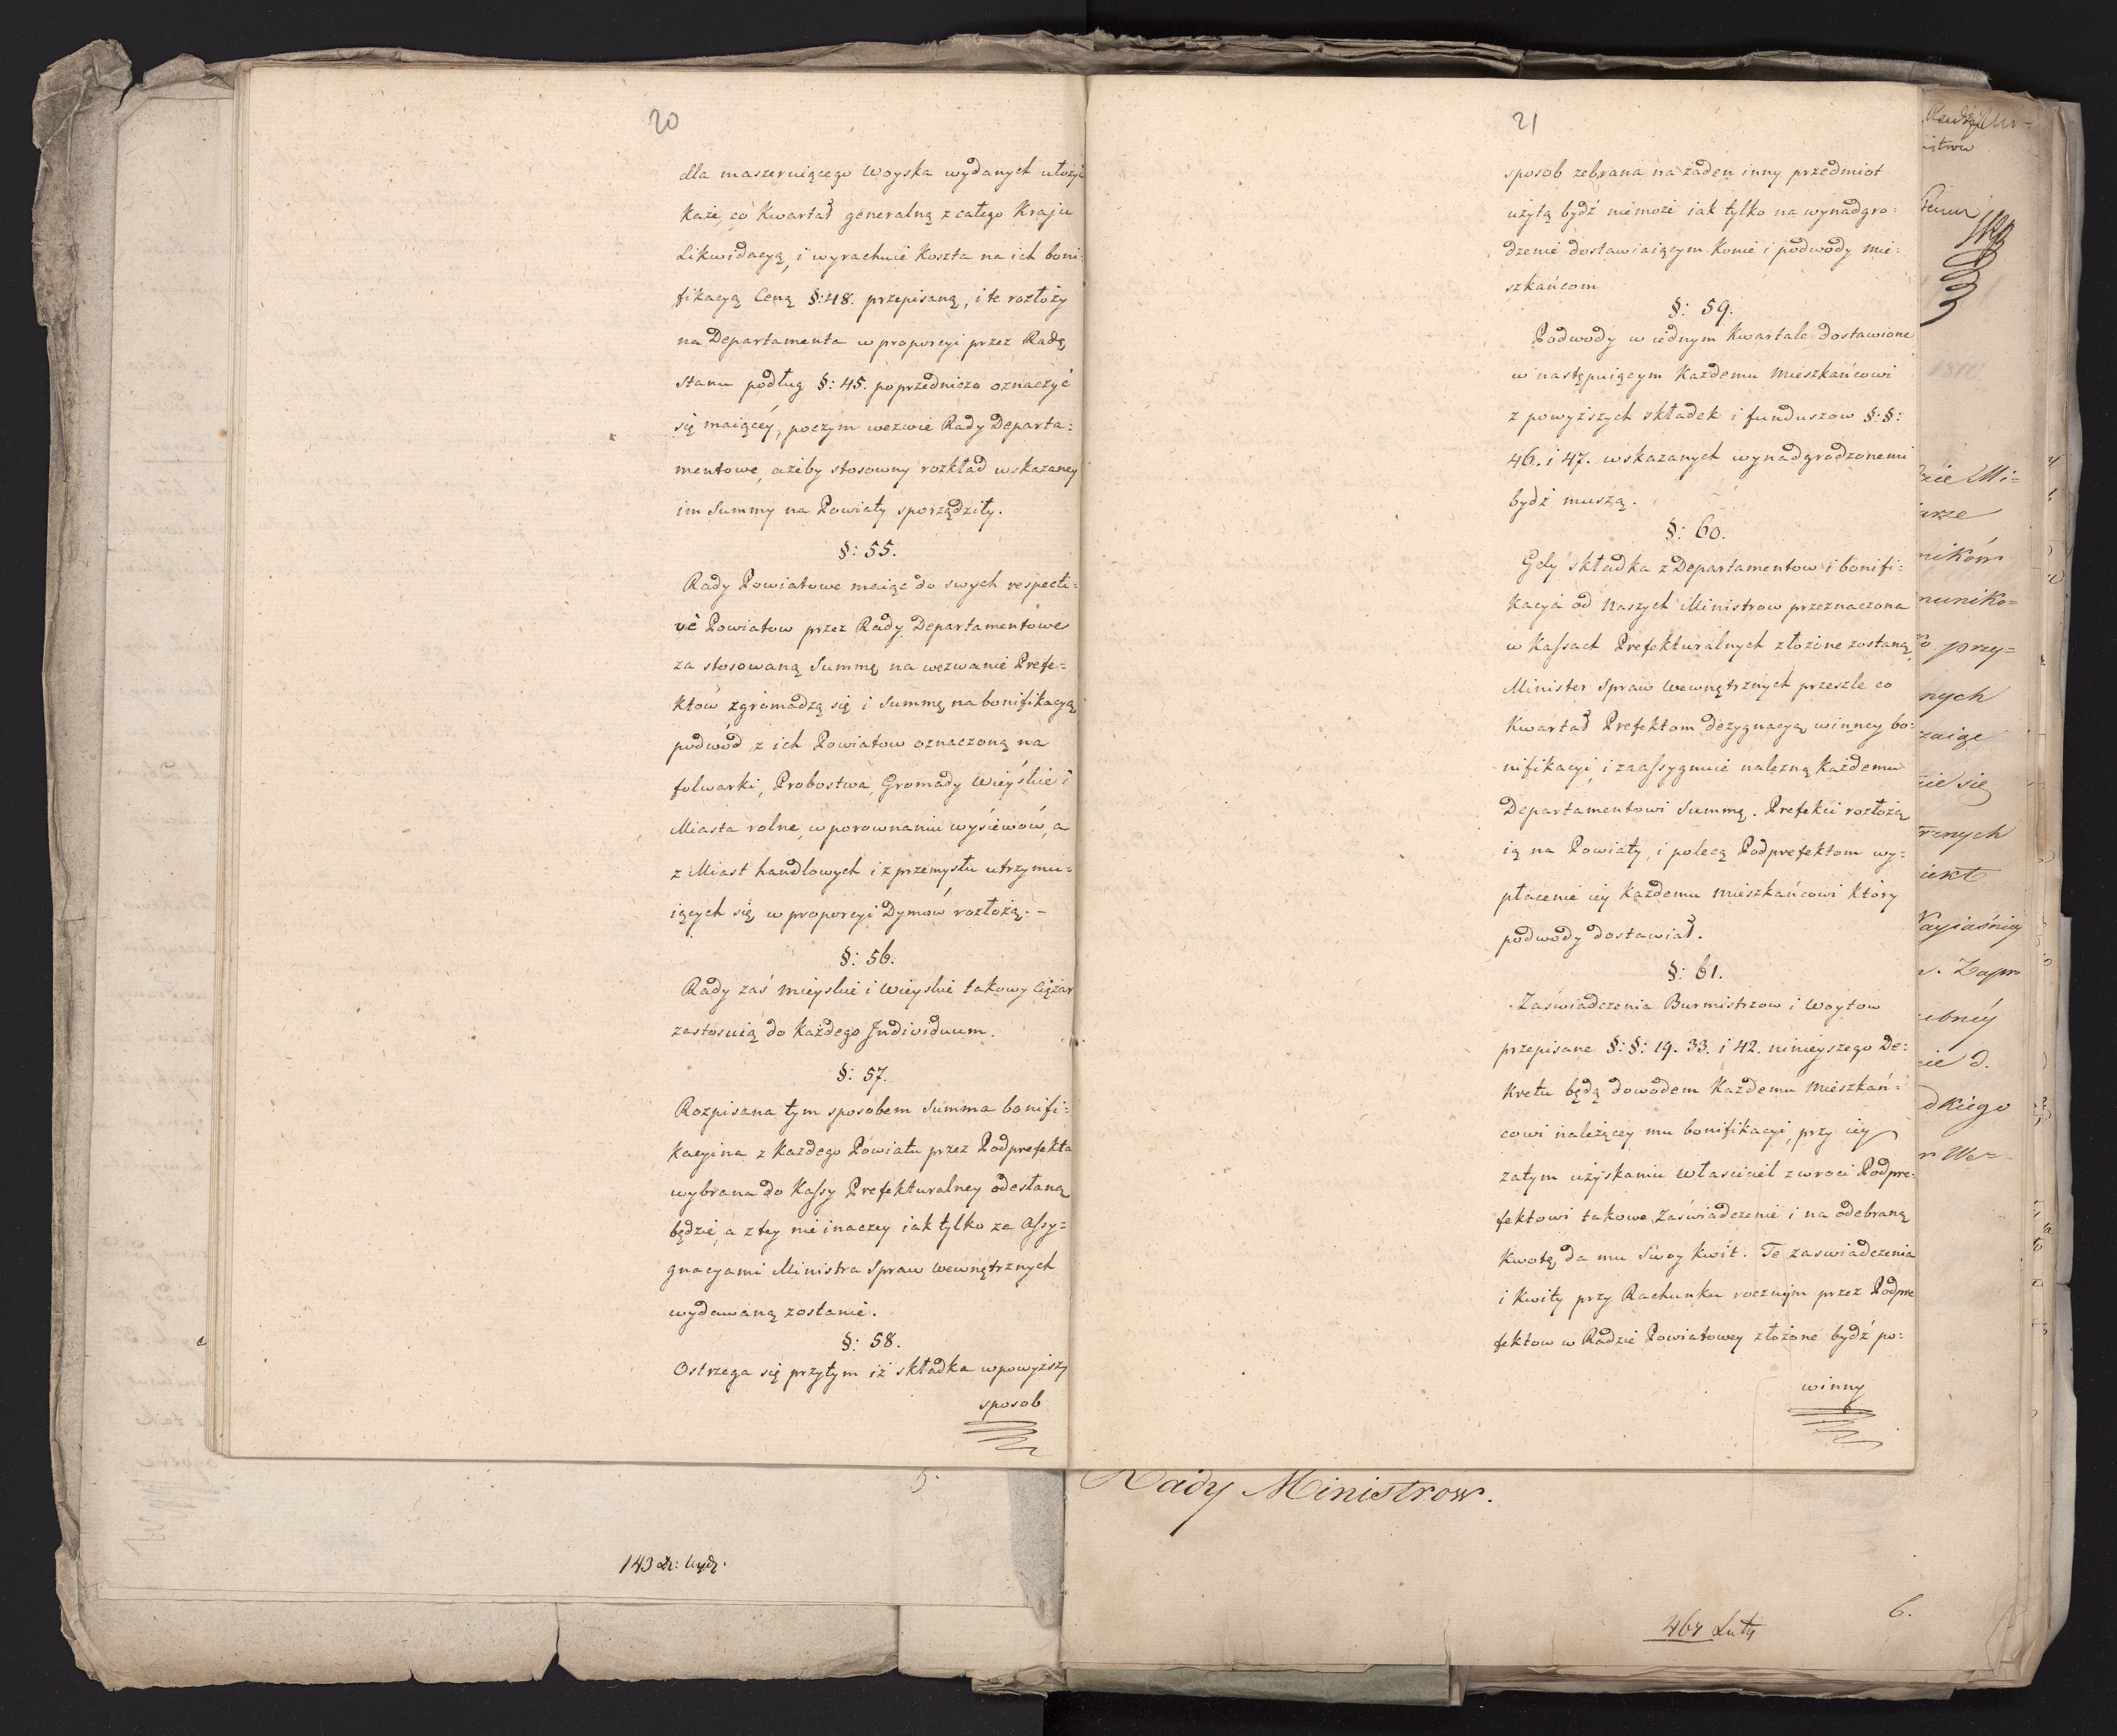 20
dla maszeruiącego Woyska wydanych ułożyć
każe, co Kwartał generalną z całego Kraju
Likwidacyą, i wyrachuie Koszta na ich boni-
fikacyą Ceną §: 48. przepisaną, i te rozłoży
na Departamenta w proporcyi przez Radę
Stanu podług §: 45. poprzedniczo oznaczyć
się maiącéy, poczym wezwie Rady Departa=
mentowe, ażeby stosowny rozkład wskazaney
im Summy na Powiaty sporządziły.
§: 55.
Rady Powiatowe maiąc do swych respecti=
vè Powiatow przez Rady Departamentowe
za stosowaną Summę, na wezwanie Prefe=
któw zgromadzą się i Summę na bonifikacyą
podwód z ich Powiatow oznaczoną na
folwarki, Probostwa, Gromady Wieyskie i
Miasta rolne, w porownaniu wysiewów, a
z Miast handlowych i z przemysłu utrzymu=
iących się, w proporcyi Dymów rozłożą. –
§: 56.
Rady zaś Mieyskie i Wieyskie takowy Ciężar
zastosuią do każdego Individuum.
§: 57.
Rozpisana tym sposobem Summa bonifi=
kacyina z Każdego Powiatu przez Podprefekta
wybrana do Kassy Prefekturalney odesłaną
będzie, a z tey nie inaczey iak tylko za Assy=
gnacyami Ministra Spraw Wewnętrznych
wydawaną zostanie.
§: 58.
Ostrzega się przytym iż składka w powyższy
sposob
21
sposob zebrana na żaden inny przedmiot
użytą bydź niemoże iak tylko na wynadgro=
dzenie dostawiaiącym Konie i podwody Mie=
szkańcom
§: 59.
Podwody w iednym Kwartale dostawione
w następuiącym Każdemu Mieszkańcowi
z powyższych składek i funduszow §: §:
46. i 47. wskazanych wynadgrodzonemi
bydź muszą.
§: 60.
Gdy składka z Departamentow i bonifi=
kacya od Naszych Ministrow przeznaczona
w Kassach Prefekturalnych złożone zostaną,
Minister Spraw Wewnętrznych prześle co
Kwartał Prefektom dezygnacyą winney bo=
nifikacyi, i zaassygnuie należną Każdemu
Departamentowi Summę. Prefekci rozłożą
ią na Powiaty, i polecą Podprefektom wy=
płacenie iey Każdemu Mieszkańcowi który
podwody dostawiał.
§: 61.
Zaświadczenia Burmistrzow i Woytow
przepisane §: §: 19. 33. i 42. ninieyszego De=
kretu będą dowodem Każdemu Mieszkań=
cowi należącey mu bonifikacyi, przy iey
zatym uzyskaniu Własciciel zwroci Podpre=
fektowi takowe Zaświadczenie i na odebraną
Kwotę, da mu Swoy Kwit. Te zaswiadczenia
i Kwity przy Rachunku rocznym przez Podpre
fektow w Radzie Powiatowey złożone bydź po=
winny
Rady Ministrow.
6.